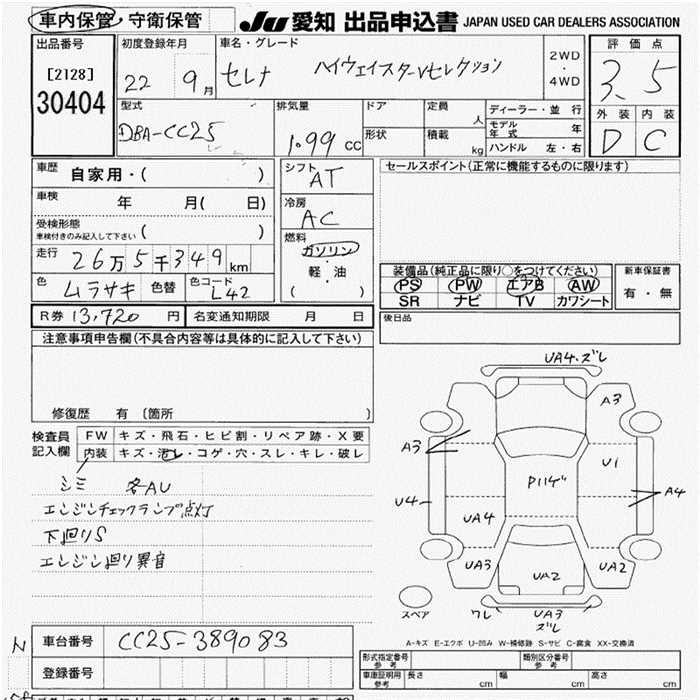 車内保管・守衛保管 JU 愛知 出品申込書 JAPAN USED CAR DEALERS ASSOCIATION
出品番号 初度登録年月 車名・グレード 評価点
[2128] 22 9月 セレナ ハイウェイスターVセレクション 2WD・4WD 3.5
30404
型式 排気量 ドア 定員 人 ディーラー・並行 外装 内装
DBA-CC25 1.99 CC 形状 積載 kg モデル年式 年 D C
ハンドル 左・右
車歴 自家用・( ) シフト AT セールスポイント(正常に機能するものに限ります)
車検 年 月( 日) 冷房 AC
受検形態 車検付きのみ記入して下さい ( )
燃料 ガソリン・軽・油 ( )
走行 26万5千349km
装備品(純正品に限り○をつけてください) 新車保証書
色 ムラサキ 色替 色コード L42
PS PW エアB AW 有・無
SR ナビ TV カワシート
R券 13,720円 名変通知期限 月 日 後日品
注意事項申告欄(不具合内容等は具体的に記入して下さい)
修復歴 有 〔箇所 〕
検査員記入欄 FW キズ・飛石・ヒビ割・リペア跡・X要
内装 キズ・汚レ・コゲ・穴・スレ・キレ・破レ
シミ 各AU
エンジンチェックランプ点灯
下廻りS
エンジン廻り異音
UA4・ズレ
A3
A3
U1
U4
A4
UA4
UA3
UA2
UA2
スペア
ワレ
UA3
ズレ
A-キズ E-エクボ U-凹み W-補修跡 S-サビ C-腐食 XX-交換済
N 車台番号 CC25-389083
登録番号
形式指定番号 参考 類別区分番号 参考
車庫証明用 参考 長さ cm 幅 cm 高さ cm